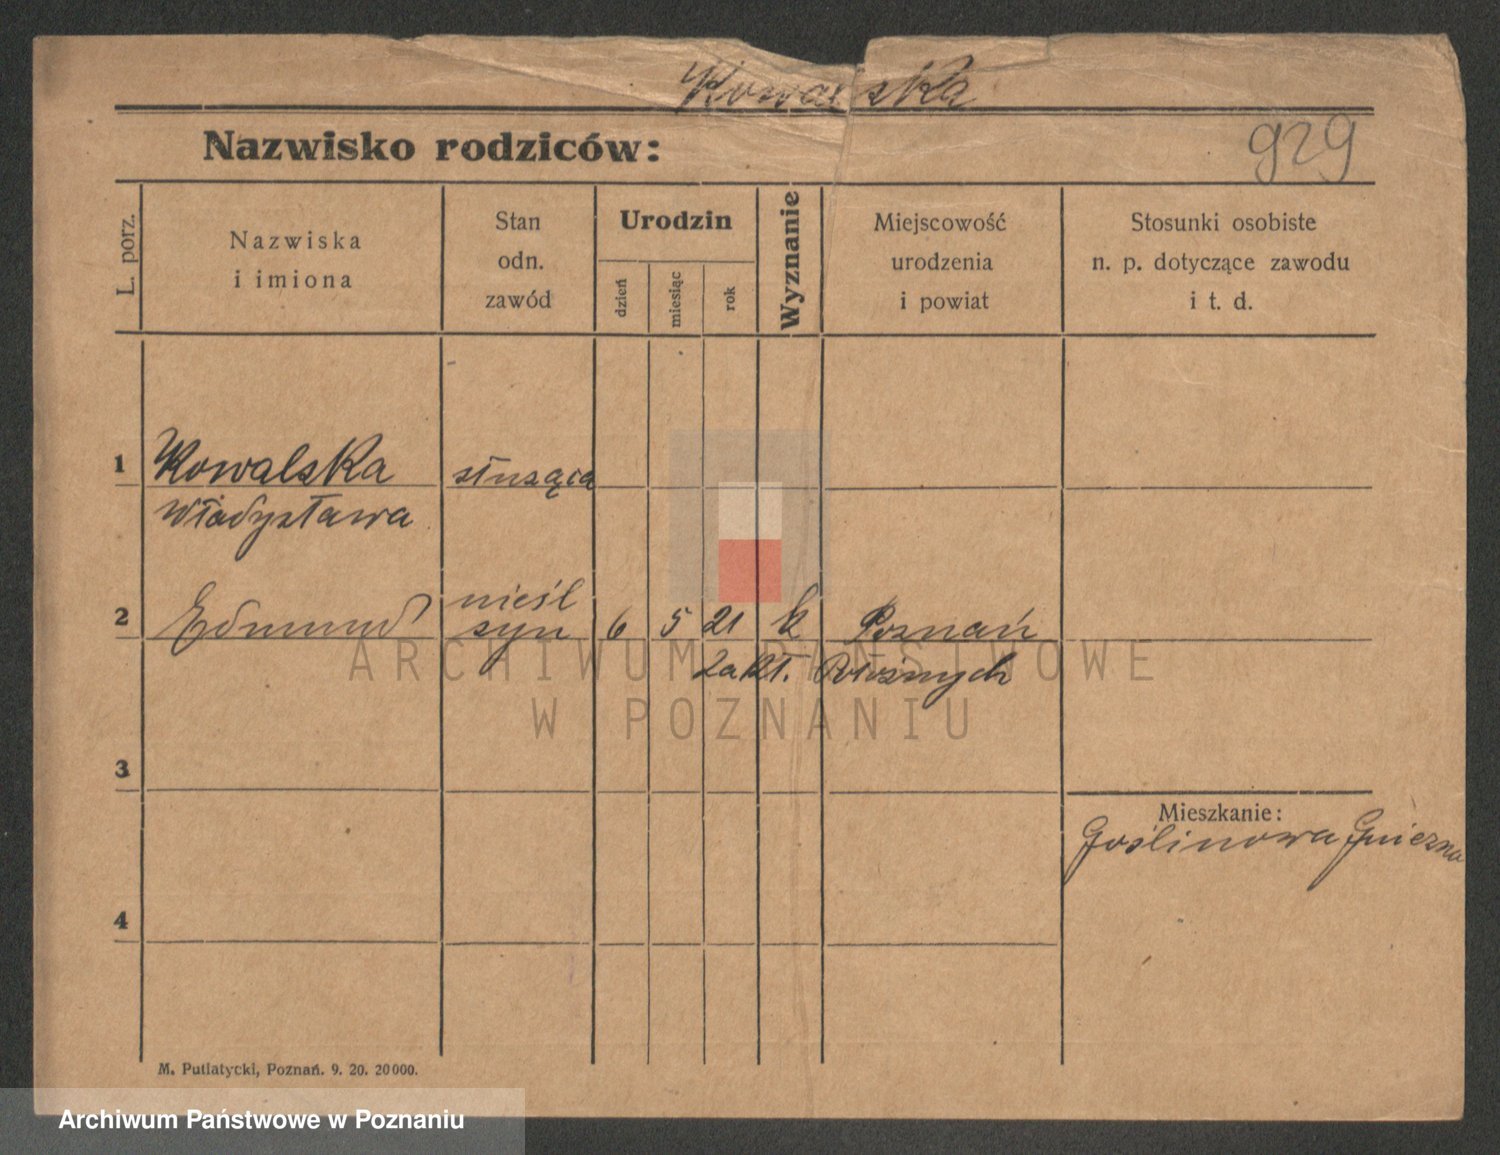 Kowalska
Nazwisko rodziców:
929
L. porz.
Nazwiska
i imiona
Stan
odn.
zawód
Urodzin
dzień
miesiąc
rok
Wyznanie
Miejscowość
urodzenia
i powiat
Stosunki osobiste
n. p. dotyczące zawodu
i t. d.
1 Kowalska służąca
Władysława
nieśl
2 Edmund syn 6 5 21 k Poznań
Zakł. Położnych
ARCHIWUM PAŃSTWOWE
W POZNANIU
3
Mieszkanie:
Goślinowa Gniezno
4
M. Putiatycki, Poznań. 9. 20. 20000.
Archiwum Państwowe w Poznaniu